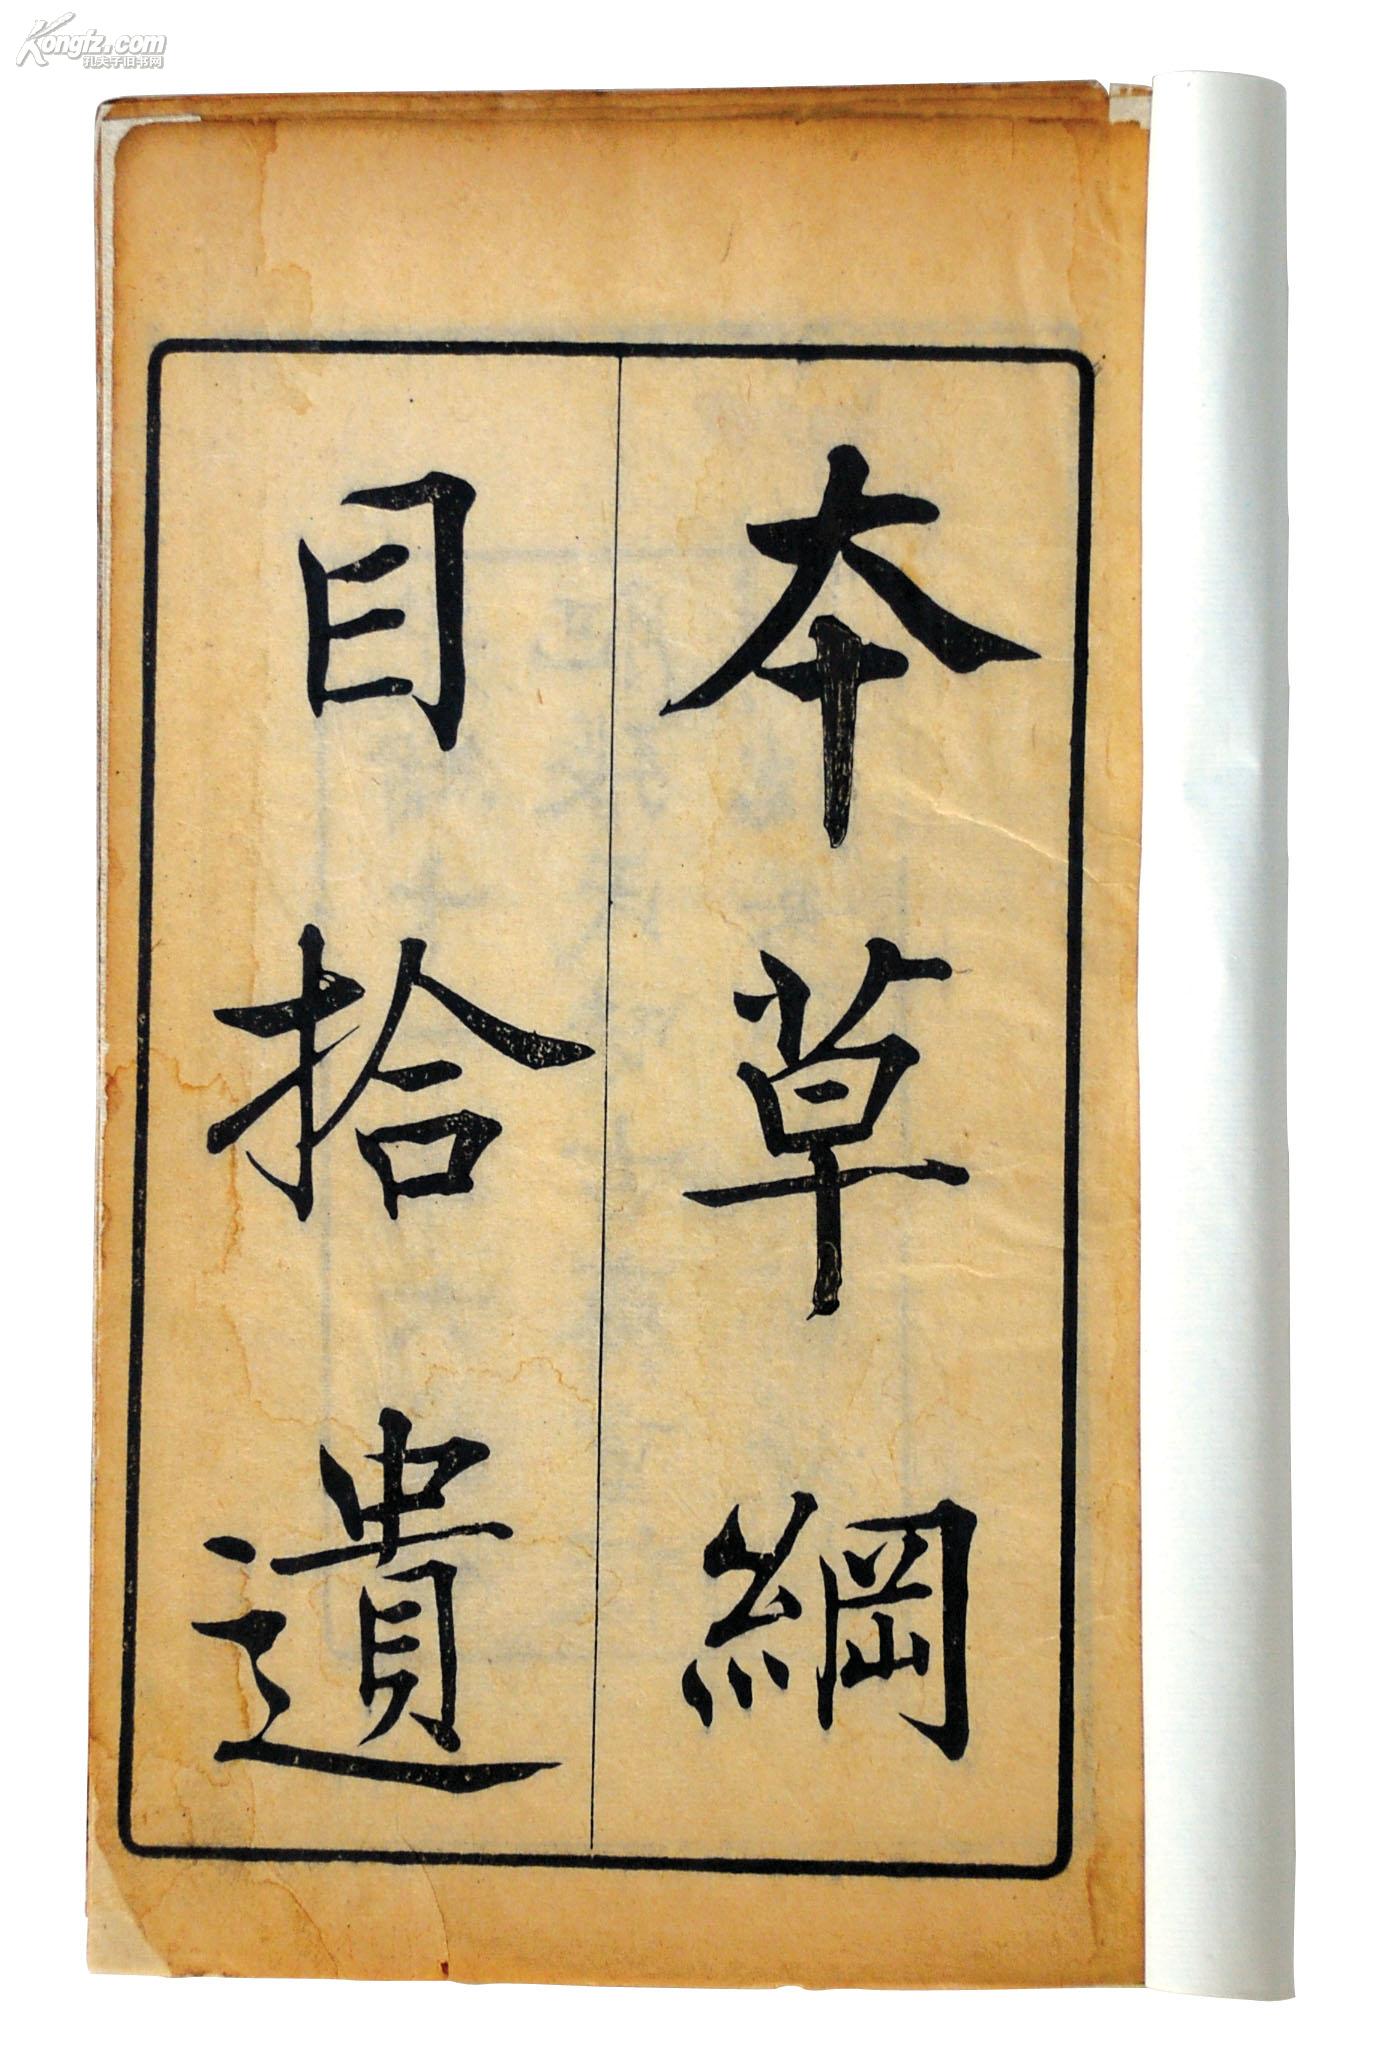 本草綱
目拾遺
Kongfz.com
孔夫子旧书网